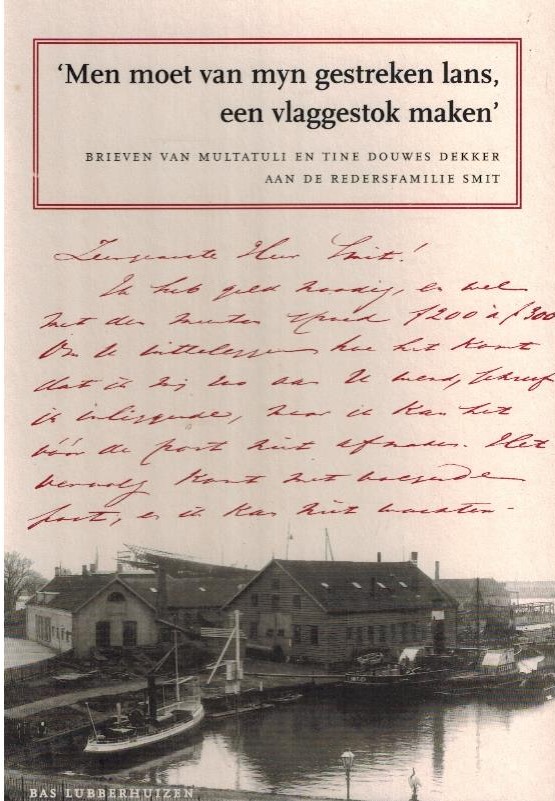 'Men moet van myn gestreken lans,
een vlaggestok maken'
BRIEVEN VAN MULTATULI EN TINE DOUWES DEKKER
AAN DE REDERSFAMILIE SMIT
Zeergeachte Heer Smit!
Ik heb geld noodig, en wel
met den meesten spoed f200 à f300
Om U uitteleggen hoe het komt
dat ik my tot U wend, schreef
ik inliggende, maar ik kan het
vóór de post niet afmaken. Het
vervolg komt met volgende
post, en ik kan niet wachten -
BAS LUBBERHUIZEN